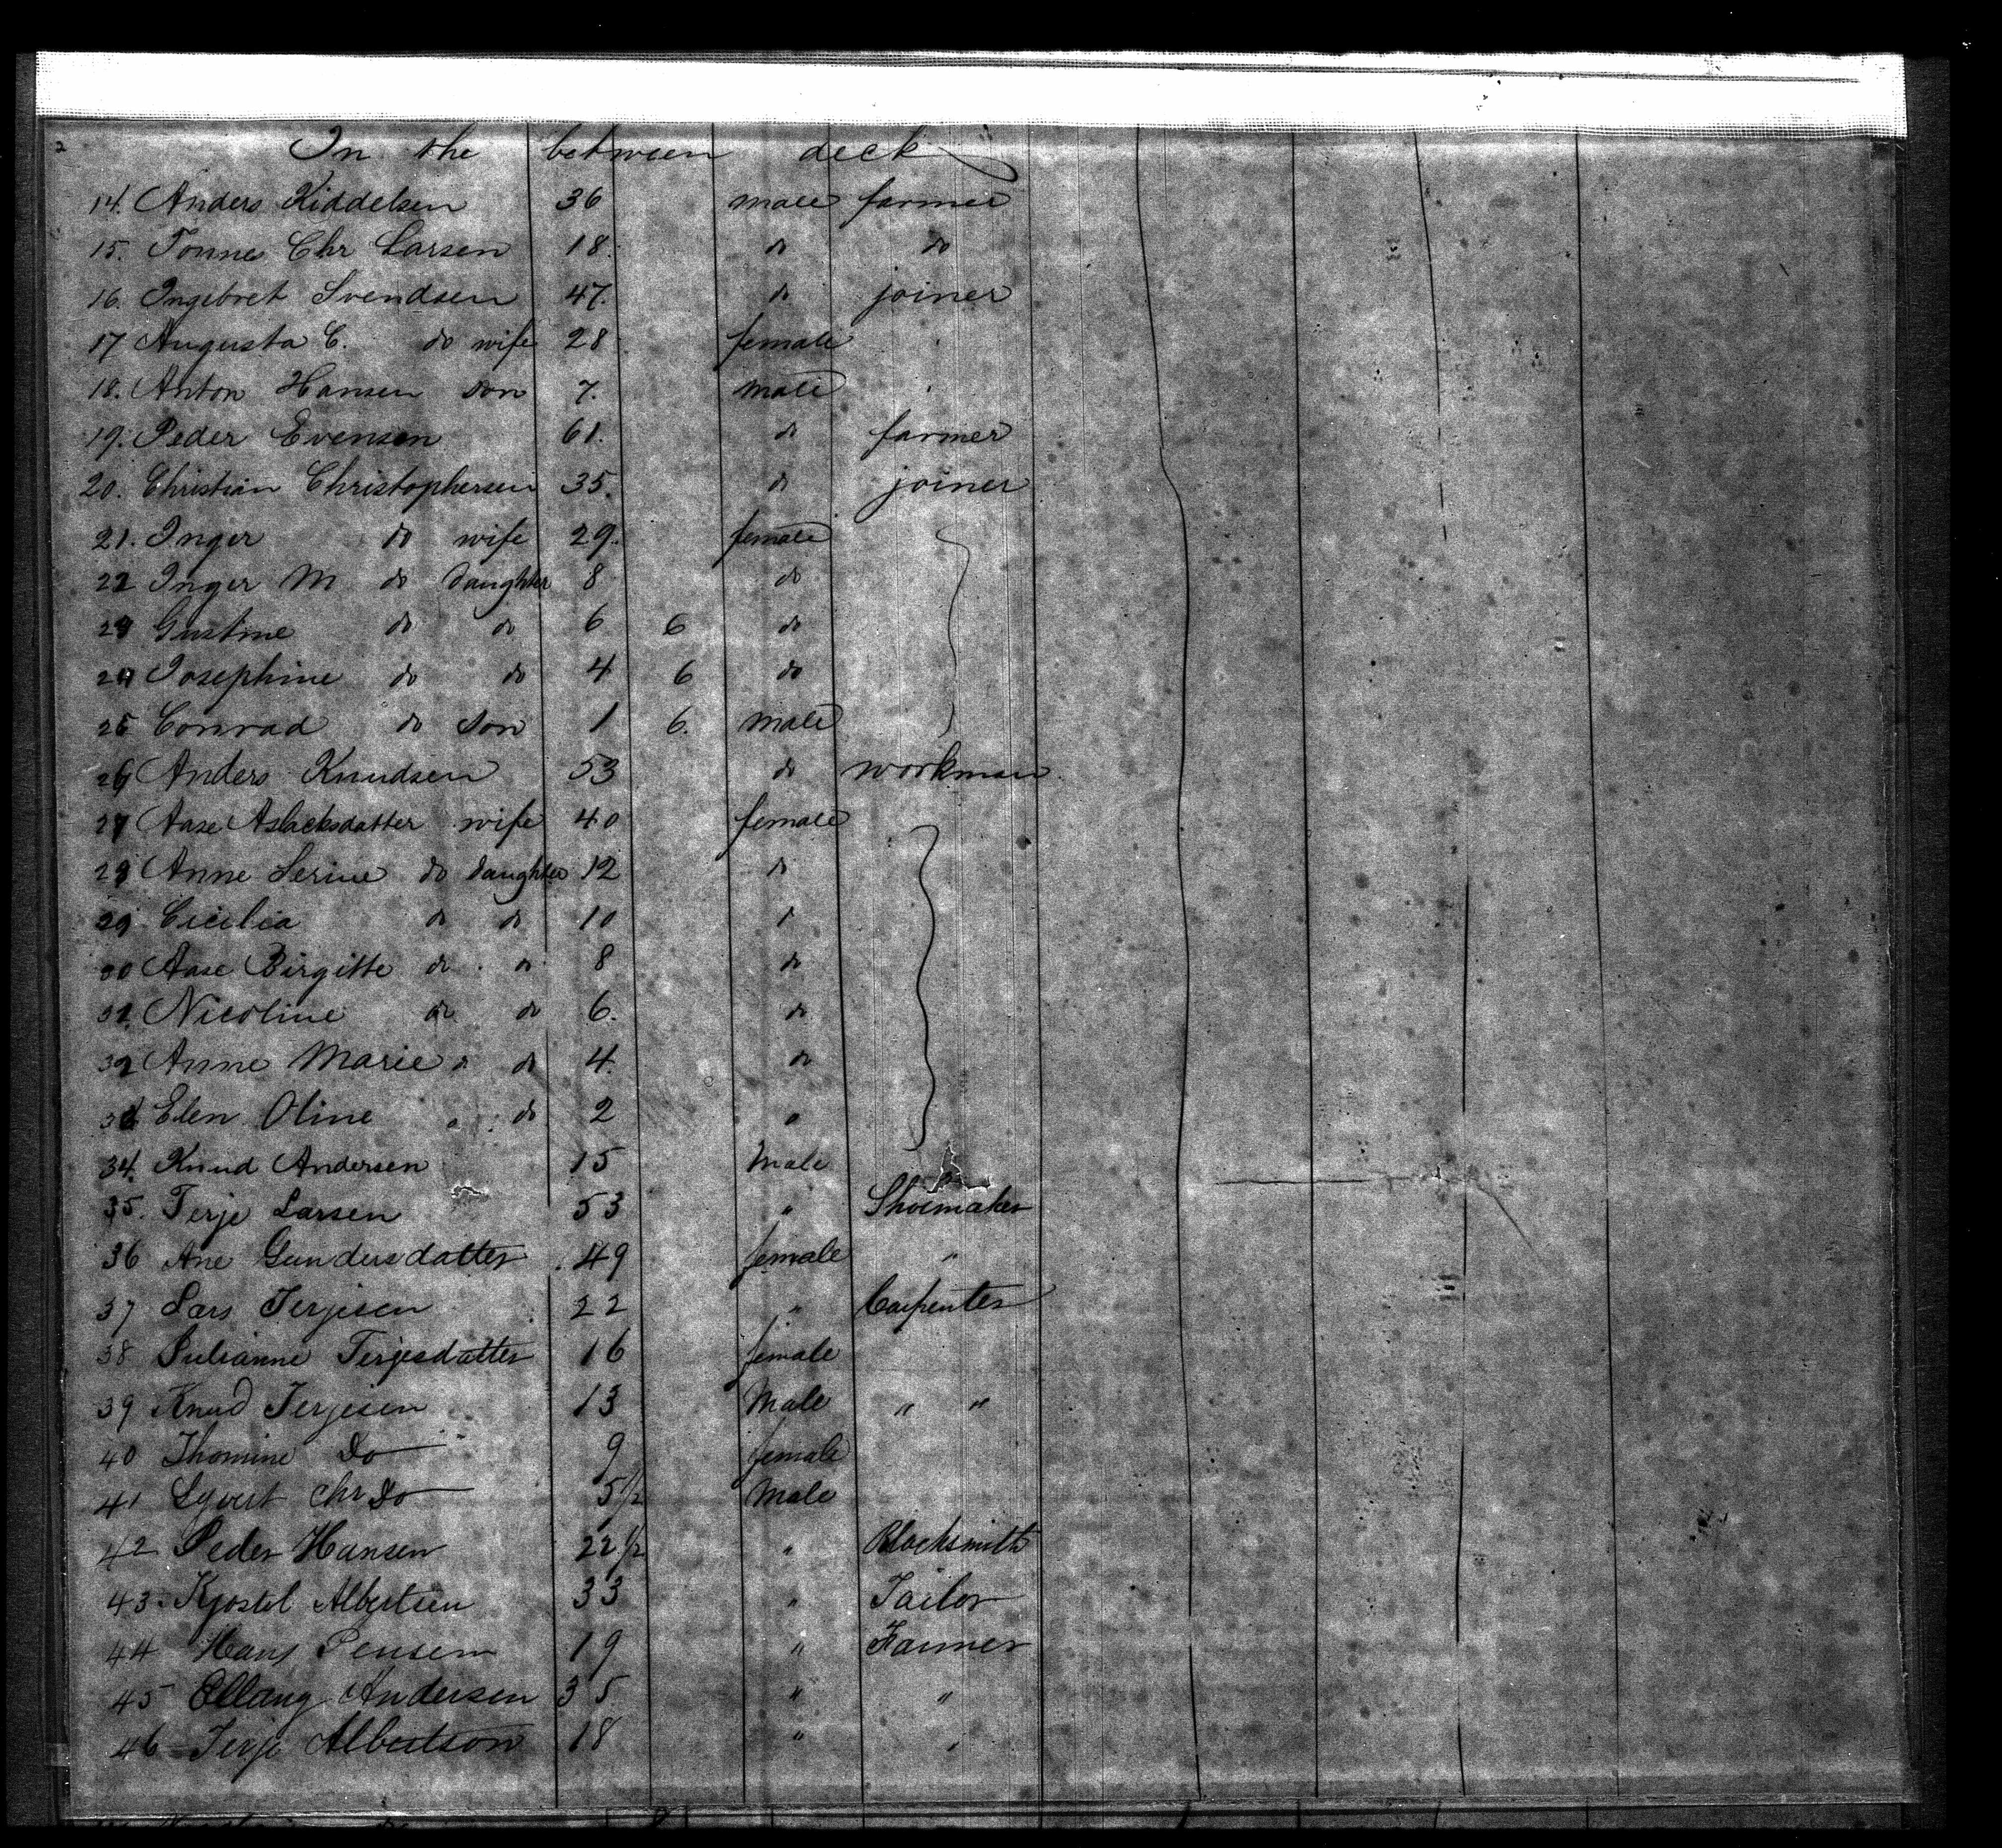 2
In the between deck
14. Anders Kiddelsen 36 male farmer
15. Tonnes Chr Larsen 18. do do
16. Ingebret Svendsen 47. do joiner
17 Augusta C. do wife 28 female
18. Anton Hansen son 7. male
19. Peder Evensen 61. do farmer
20. Christian Christophersen 35. do joiner
21. Inger do wife 29. female
22 Inger M do daughter 8 do
23 Gustine do do 6 6 do
24 Josephine do do 4 6 do
25 Conrad do son 1 6. male
26 Anders Knudsen 53 do workman
27 Aase Aslacksdatter wife 40 female
28 Anne Serine do daughter 12 do
29 Cicilia do do 10 do
30 Aase Birgitte do do 8 do
31. Nicoline do do 6. do
32 Anne Marie do do 4. do
33 Elen Oline " do 2 "
34. Knud Andersen 15 Male
35. Terje Larsen 53 " Shoemaker
36 Ane Gundersdatter 49 female "
37 Lars Terjesen 22 " Carpenter
38 Julianne Terjesdatter 16 female
39 Knud Terjesen 13 Male " "
40 Thomine Do 9 female
41 Chr Do 5 1/2 Male
42 Peder Hansen 22 1/2 " Blacksmith
43. Albertsen 33 " Tailor
44 Hans Jensen 19 " Farmer
45 Ellang Andersen 35 " "
46 Terje Albertson 18 " "